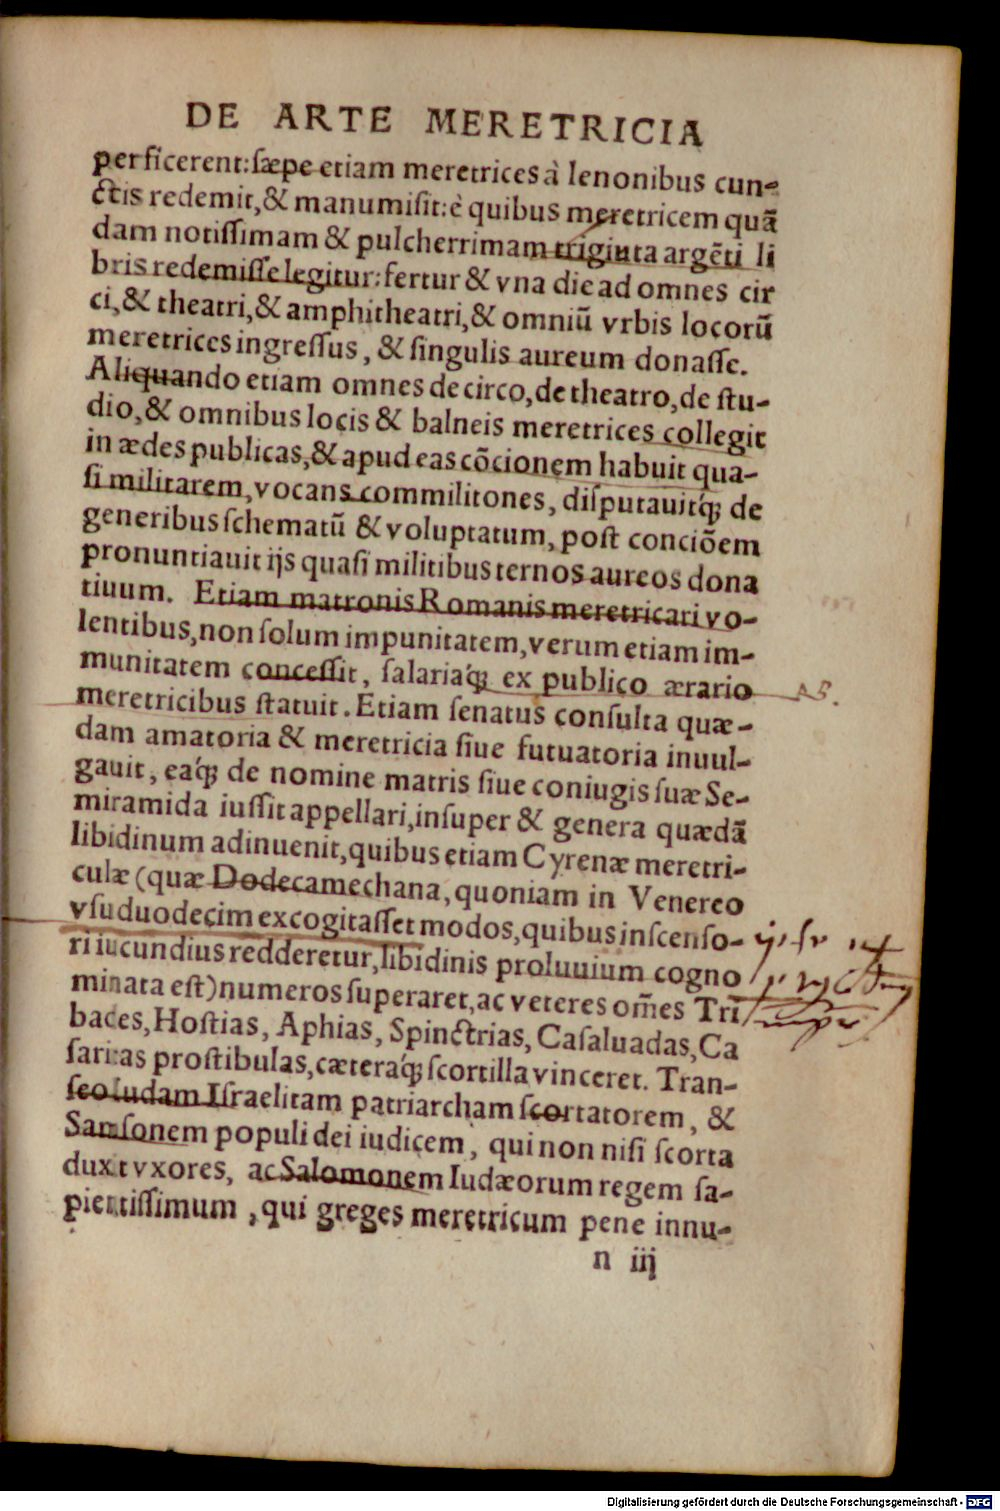 DE ARTE MERETRICIA
perficerent: sæpe etiam meretrices à lenonibus cun-
ctis redemit, & manumisit: è quibus meretricem quã
dam notissimam & pulcherrimam triginta argẽti li
bris redemisse legitur: fertur & vna die ad omnes cir
ci, & theatri, & amphitheatri, & omniũ vrbis locorũ
meretrices ingressus, & singulis aureum donasse.
Aliquando etiam omnes de circo, de theatro, de stu-
dio, & omnibus locis & balneis meretrices collegit
in ædes publicas, & apud eas cõcionem habuit qua-
si militarem, vocans commilitones, disputauitq́; de
generibus schematũ & voluptatum, post conciõem
pronuntiauit ijs quasi militibus ternos aureos dona
tiuum. Etiam matronis Romanis meretricari vo-
lentibus, non solum impunitatem, verum etiam im-
munitatem concessit, salariaq́; ex publico ærario
meretricibus statuit. Etiam senatus consulta quæ-
dam amatoria & meretricia siue futuatoria inuul-
gauit, eaq́; de nomine matris siue coniugis suæ Se-
miramida iussit appellari, insuper & genera quædã
libidinum adinuenit, quibus etiam Cyrenæ meretri-
culæ (quæ Dodecamechana, quoniam in Venereo
vsu duodecim excogitasset modos, quibus inscenso-
ri iucundius redderetur, libidinis proluuium cogno
minata est) numeros superaret, ac veteres om̃es Trĩ
baces, Hostias, Aphias, Spinctrias, Casaluadas, Ca
saritas prostibulas, cæteraq́; scortilla vinceret. Tran-
seo Iudam Israelitam patriarcham scortatorem, &
Samsonem populi dei iudicem, qui non nisi scorta
duxit vxores, ac Salomonem Iudæorum regem sa-
pientissimum, qui greges meretricum pene innu-
n iij
Digitalisierung gefördert durch die Deutsche Forschungsgemeinschaft - DFG